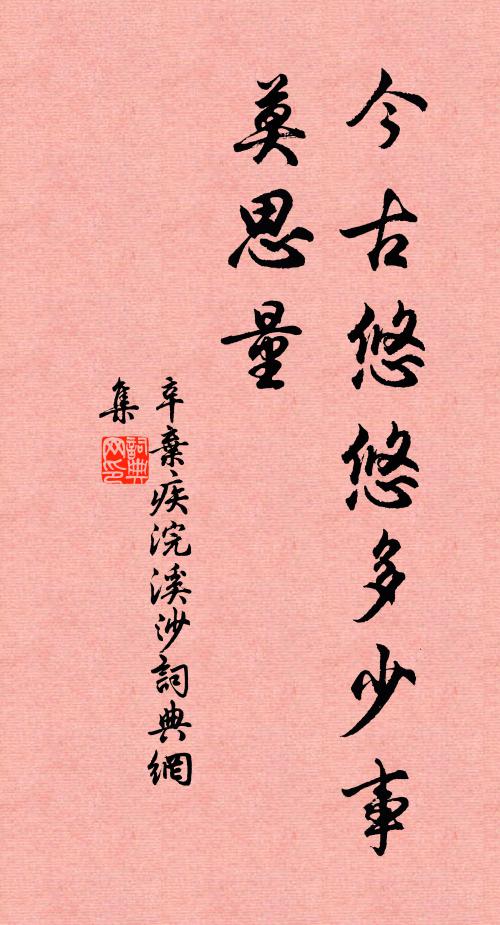 今古悠悠多少事
莫思量
辛棄疾浣溪沙詞典網
集
詞典網印